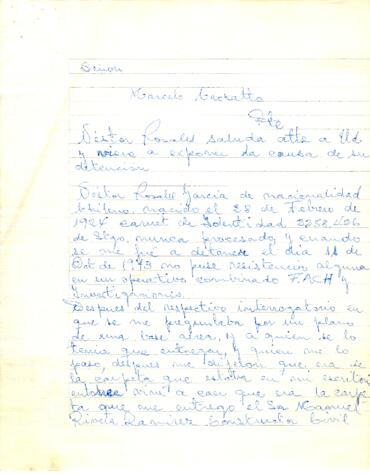 Señor
Marcelo
Pte
Néstor Rosales saluda atte a Ud
y viene a exponer la causa de su
detencion
Nestor Rosales Garcia de nacionalidad
Chileno, nacido el 28 de Febrero de
1924 carnet de Identidad 2258.426
de Stgo, nunca procesado y cuando
se me fué a detener el dia 11 de
Oct de 1973 no puse resistencia alguna
en un operativo combinado FACH y
Investigaciones.
Despues del respectivo interrogatorio en
que se me preguntaba por un plano
de una base aerea, y a quien se lo
tenia que entregar, y quien me lo
paso, despues me dijeron que era se
la carpeta que estaba en mi escritori
entonces vine a caer que era la carpe
ta que me entrego el Sr Manuel
Rivera Ramirez Constructor Civil